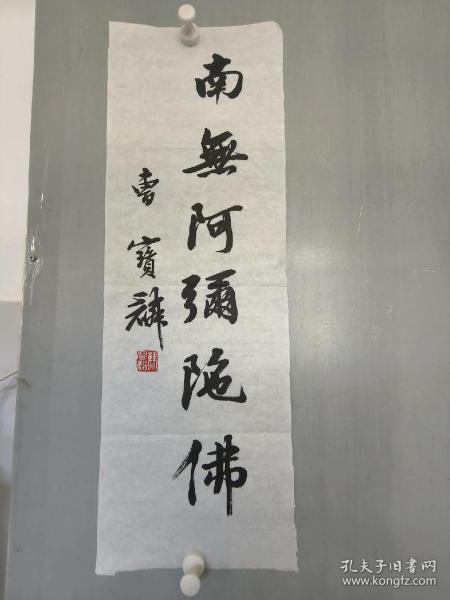 南無阿彌陀佛
曹寶麟
孔夫子旧书网
www.kongfz.com